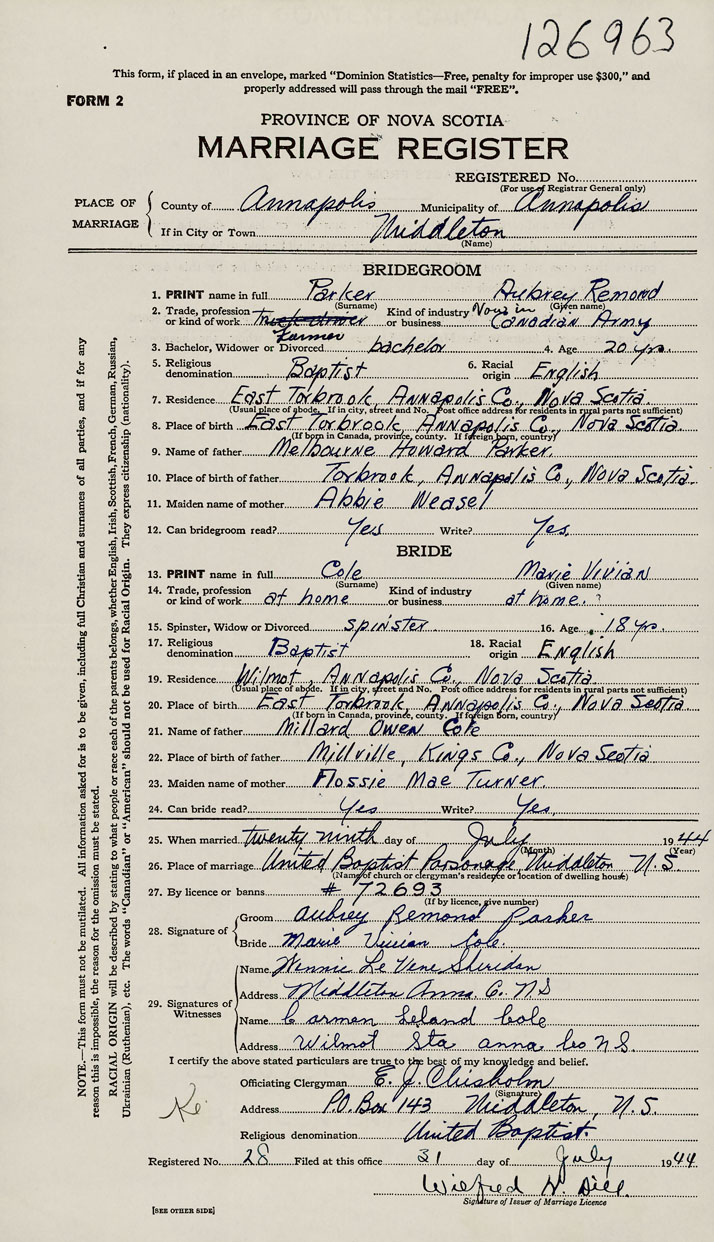 126963
This form, if placed in an envelope, marked "Dominion Statistics—Free, penalty for improper use $300," and
properly addressed will pass through the mail "FREE".
FORM 2
PROVINCE OF NOVA SCOTIA
MARRIAGE REGISTER
REGISTERED No.
(For use of Registrar General only)
PLACE OF MARRIAGE
County of Annapolis Municipality of Annapolis
If in City or Town Middleton
(Name)
BRIDEGROOM
1. PRINT name in full Parker Aubrey Remond
(Surname) (Given name)
2. Trade, profession or kind of work truck driver Farmer Kind of industry or business Now in Canadian Army
3. Bachelor, Widower or Divorced bachelor 4. Age 20 yrs.
5. Religious denomination Baptist 6. Racial origin English
7. Residence East Torbrook, Annapolis Co., Nova Scotia.
(Usual place of abode. If in city, street and No. Post office address for residents in rural parts not sufficient)
8. Place of birth East Torbrook, Annapolis Co., Nova Scotia
(If born in Canada, province, county. If foreign born, country)
9. Name of father Melbourne Howard Parker
10. Place of birth of father Torbrook, Annapolis Co., Nova Scotia.
11. Maiden name of mother Abbie Weasel
12. Can bridegroom read? Yes Write? Yes.
BRIDE
13. PRINT name in full Cole Marie Vivian
(Surname) (Given name)
14. Trade, profession or kind of work at home Kind of industry or business at home. ?
15. Spinster, Widow or Divorced spinster. 16. Age 18 yrs.
17. Religious denomination Baptist 18. Racial origin English
19. Residence Wilmot, Annapolis Co., Nova Scotia
(Usual place of abode. If in city, street and No. Post office address for residents in rural parts not sufficient)
20. Place of birth East Torbrook, Annapolis Co., Nova Scotia
(If born in Canada, province, county. If foreign born, country)
21. Name of father Millard Owen Cole
22. Place of birth of father Millville, Kings Co., Nova Scotia
23. Maiden name of mother Flossie Mae Turner.
24. Can bride read? Yes Write? Yes.
25. When married twenty ninth day of July 1944
(Month) (Year)
26. Place of marriage United Baptist Parsonage, Middleton N.S.
(Name of church or clergyman's residence or location of dwelling house)
27. By licence or banns # 72693
(If by licence, give number)
28. Signature of
Groom Aubrey Remond Parker
Bride Marie Vivian Cole.
29. Signatures of Witnesses
Name Le Vene Sheridan
Address Middleton Anna C. NS
Name Carmen Leland Cole
Address Wilmot Sta anna Co N S.
I certify the above stated particulars are true to the best of my knowledge and belief.
Officiating Clergyman E. J. Chisholm
(Signature)
Address P.O. Box 143 Middleton, N.S.
Religious denomination United Baptist.
Registered No. 28 Filed at this office 31 day of July 1944
Wilfred W. Dill
Signature of Issuer of Marriage Licence
[SEE OTHER SIDE]
NOTE.—This form must not be mutilated. All information asked for is to be given, including full Christian and surnames of all parties, and if for any
reason this is impossible, the reason for the omission must be stated.
RACIAL ORIGIN will be described by stating to what people or race each of the parents belongs, whether English, Irish, Scottish, French, German, Russian,
Ukrainian (Ruthenian), etc. The words "Canadian" or "American" should not be used for Racial Origin. They express citizenship (nationality).